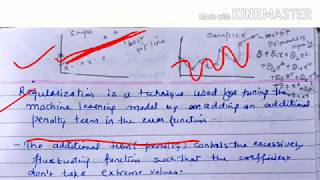 Made with KINEMASTER
Simple
Complex
"best
fit line"
Regularization is a technique used for tuning the
machine learning model by adding an additional
penalty term in the error function.
- The additional term (penalty) controls the excessively
fluctuating function such that the coefficient
don't take extreme values.